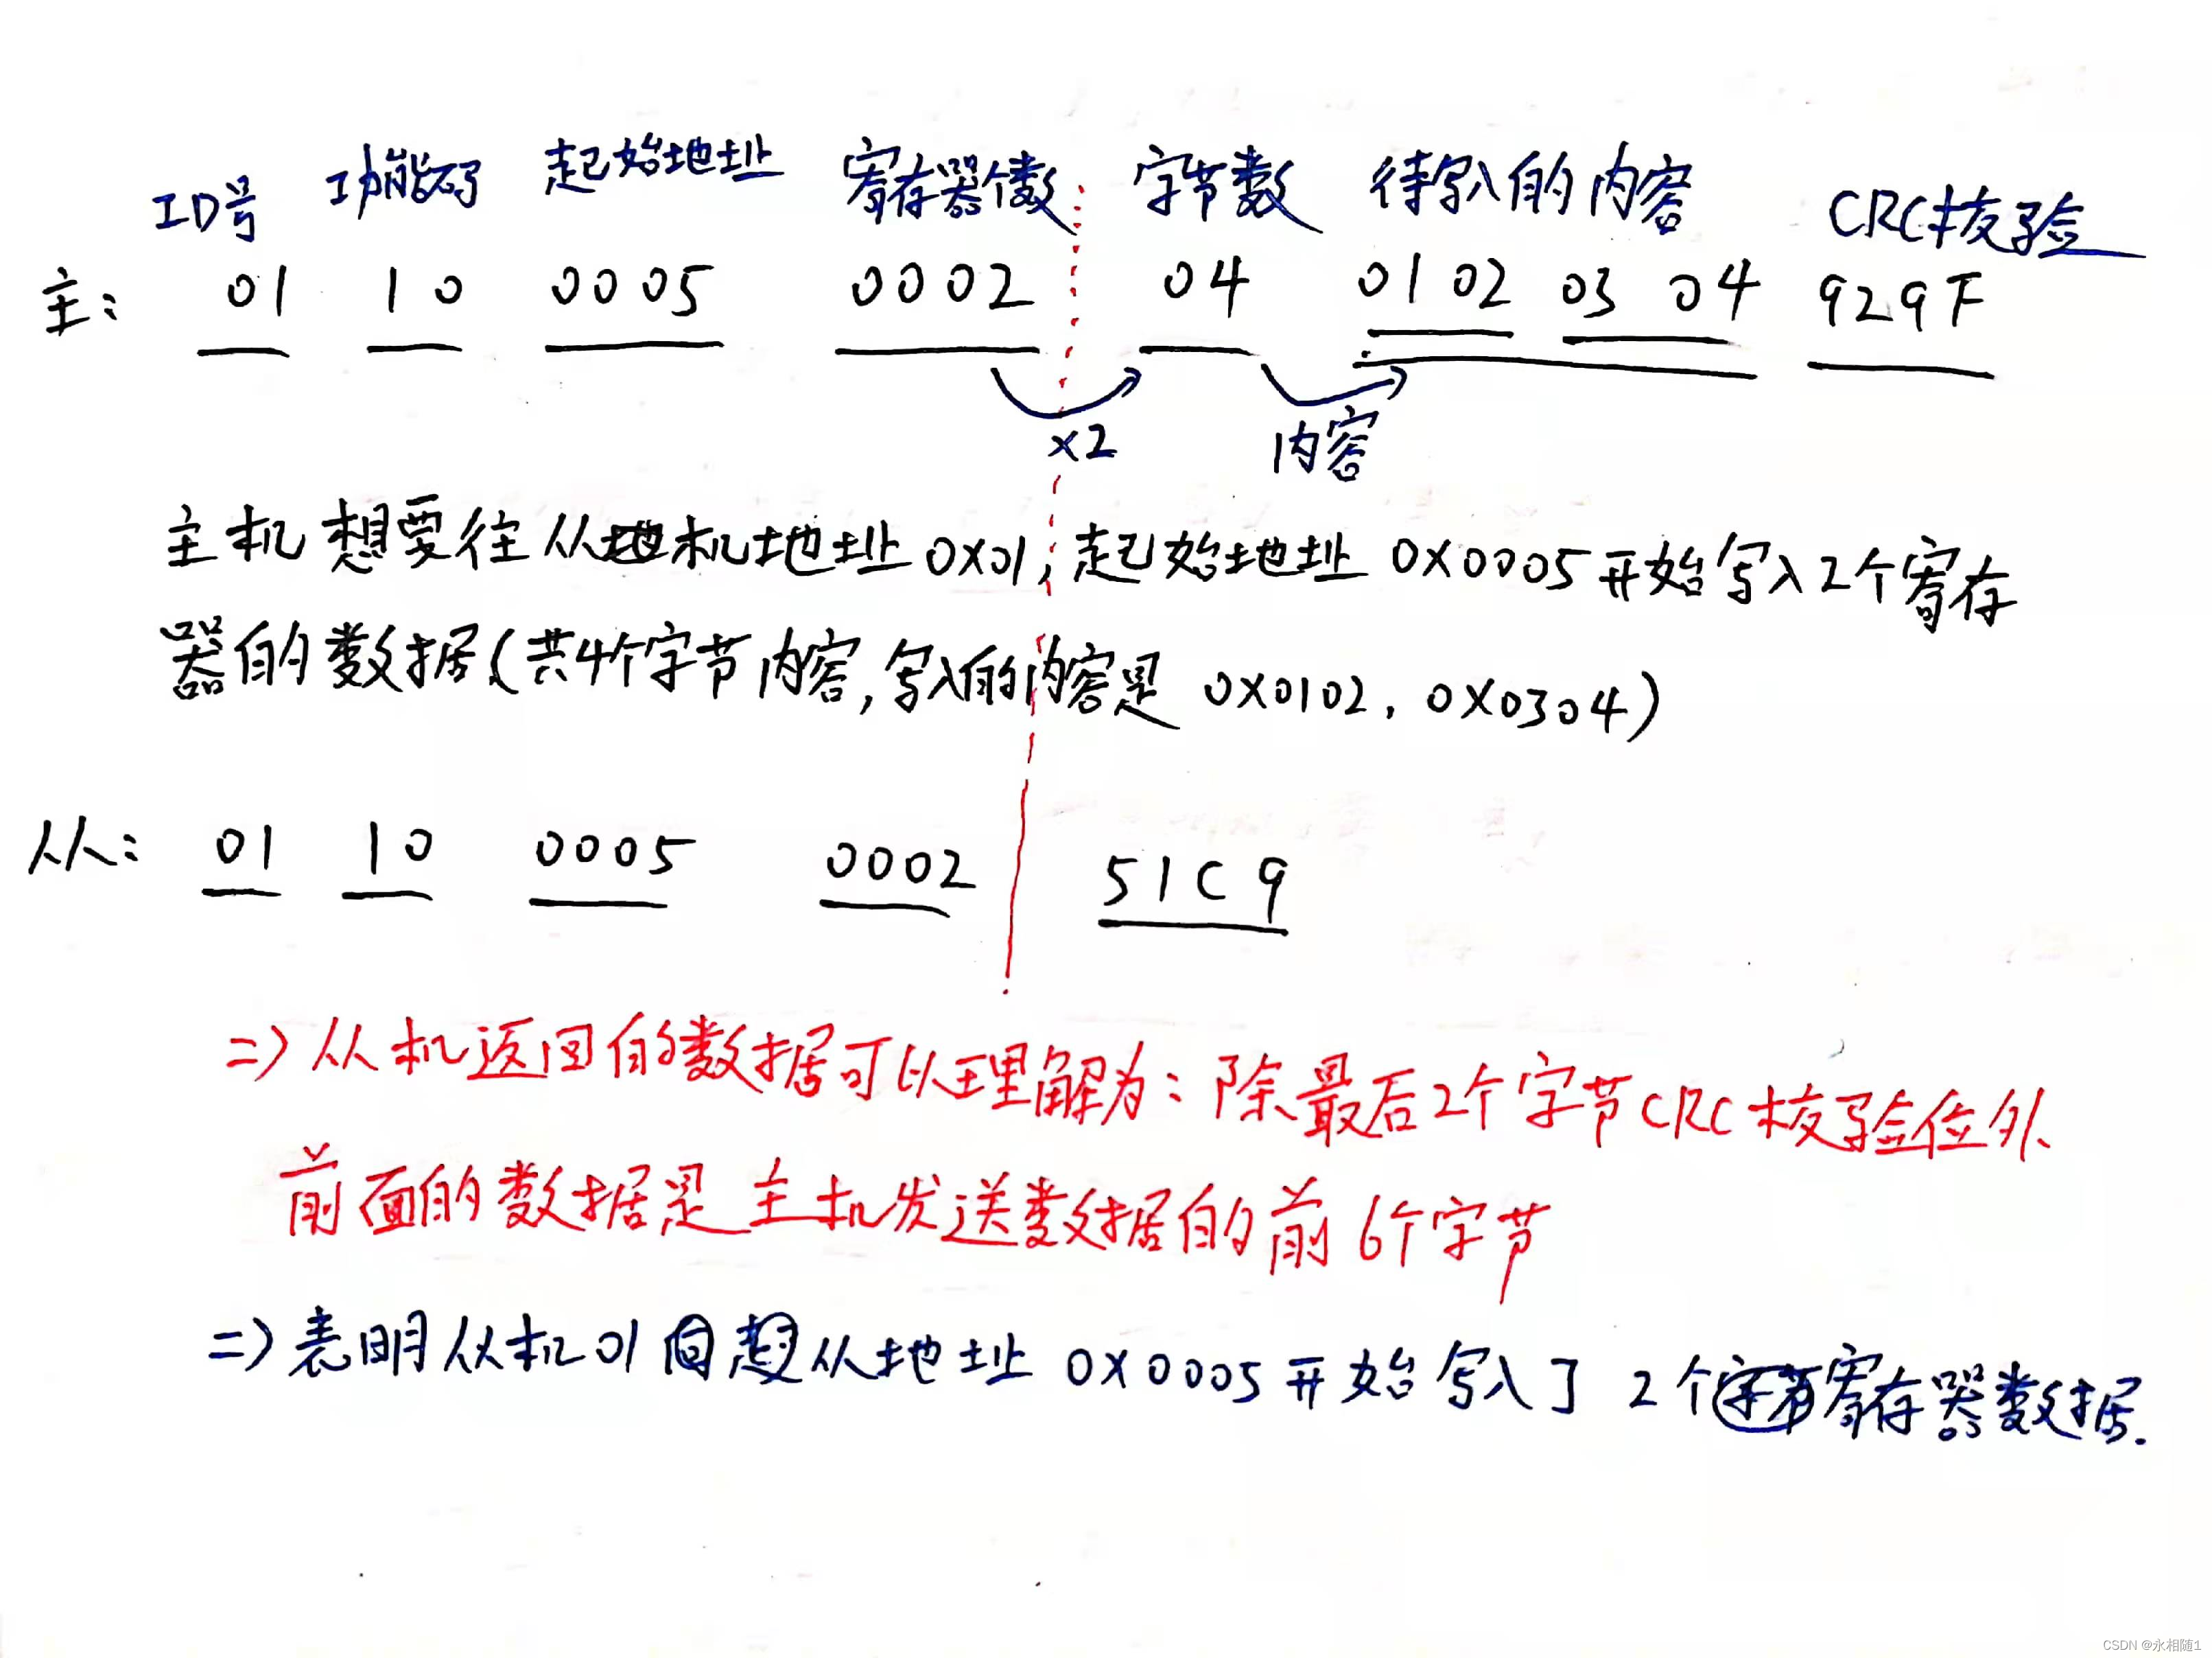 ID号 功能码 起始地址 寄存器个数 字节数 待写入的内容 CRC校验
主: 01 10 0005 0002 04 0102 03 04 929F
×2 内容
主机想要往从机地址0X01,起始地址0X0005开始写入2个寄存
器的数据(共4个字节内容,写入的内容是 0X0102, 0X0304)
从: 01 10 0005 0002 51C9
=> 从机返回的数据可以理解为: 除最后2个字节CRC校验位外
前面的数据是主机发送数据的前6个字节
=> 表明从机01 从地址 0X0005开始写入了 2个寄存器数据.
CSDN @永相随1